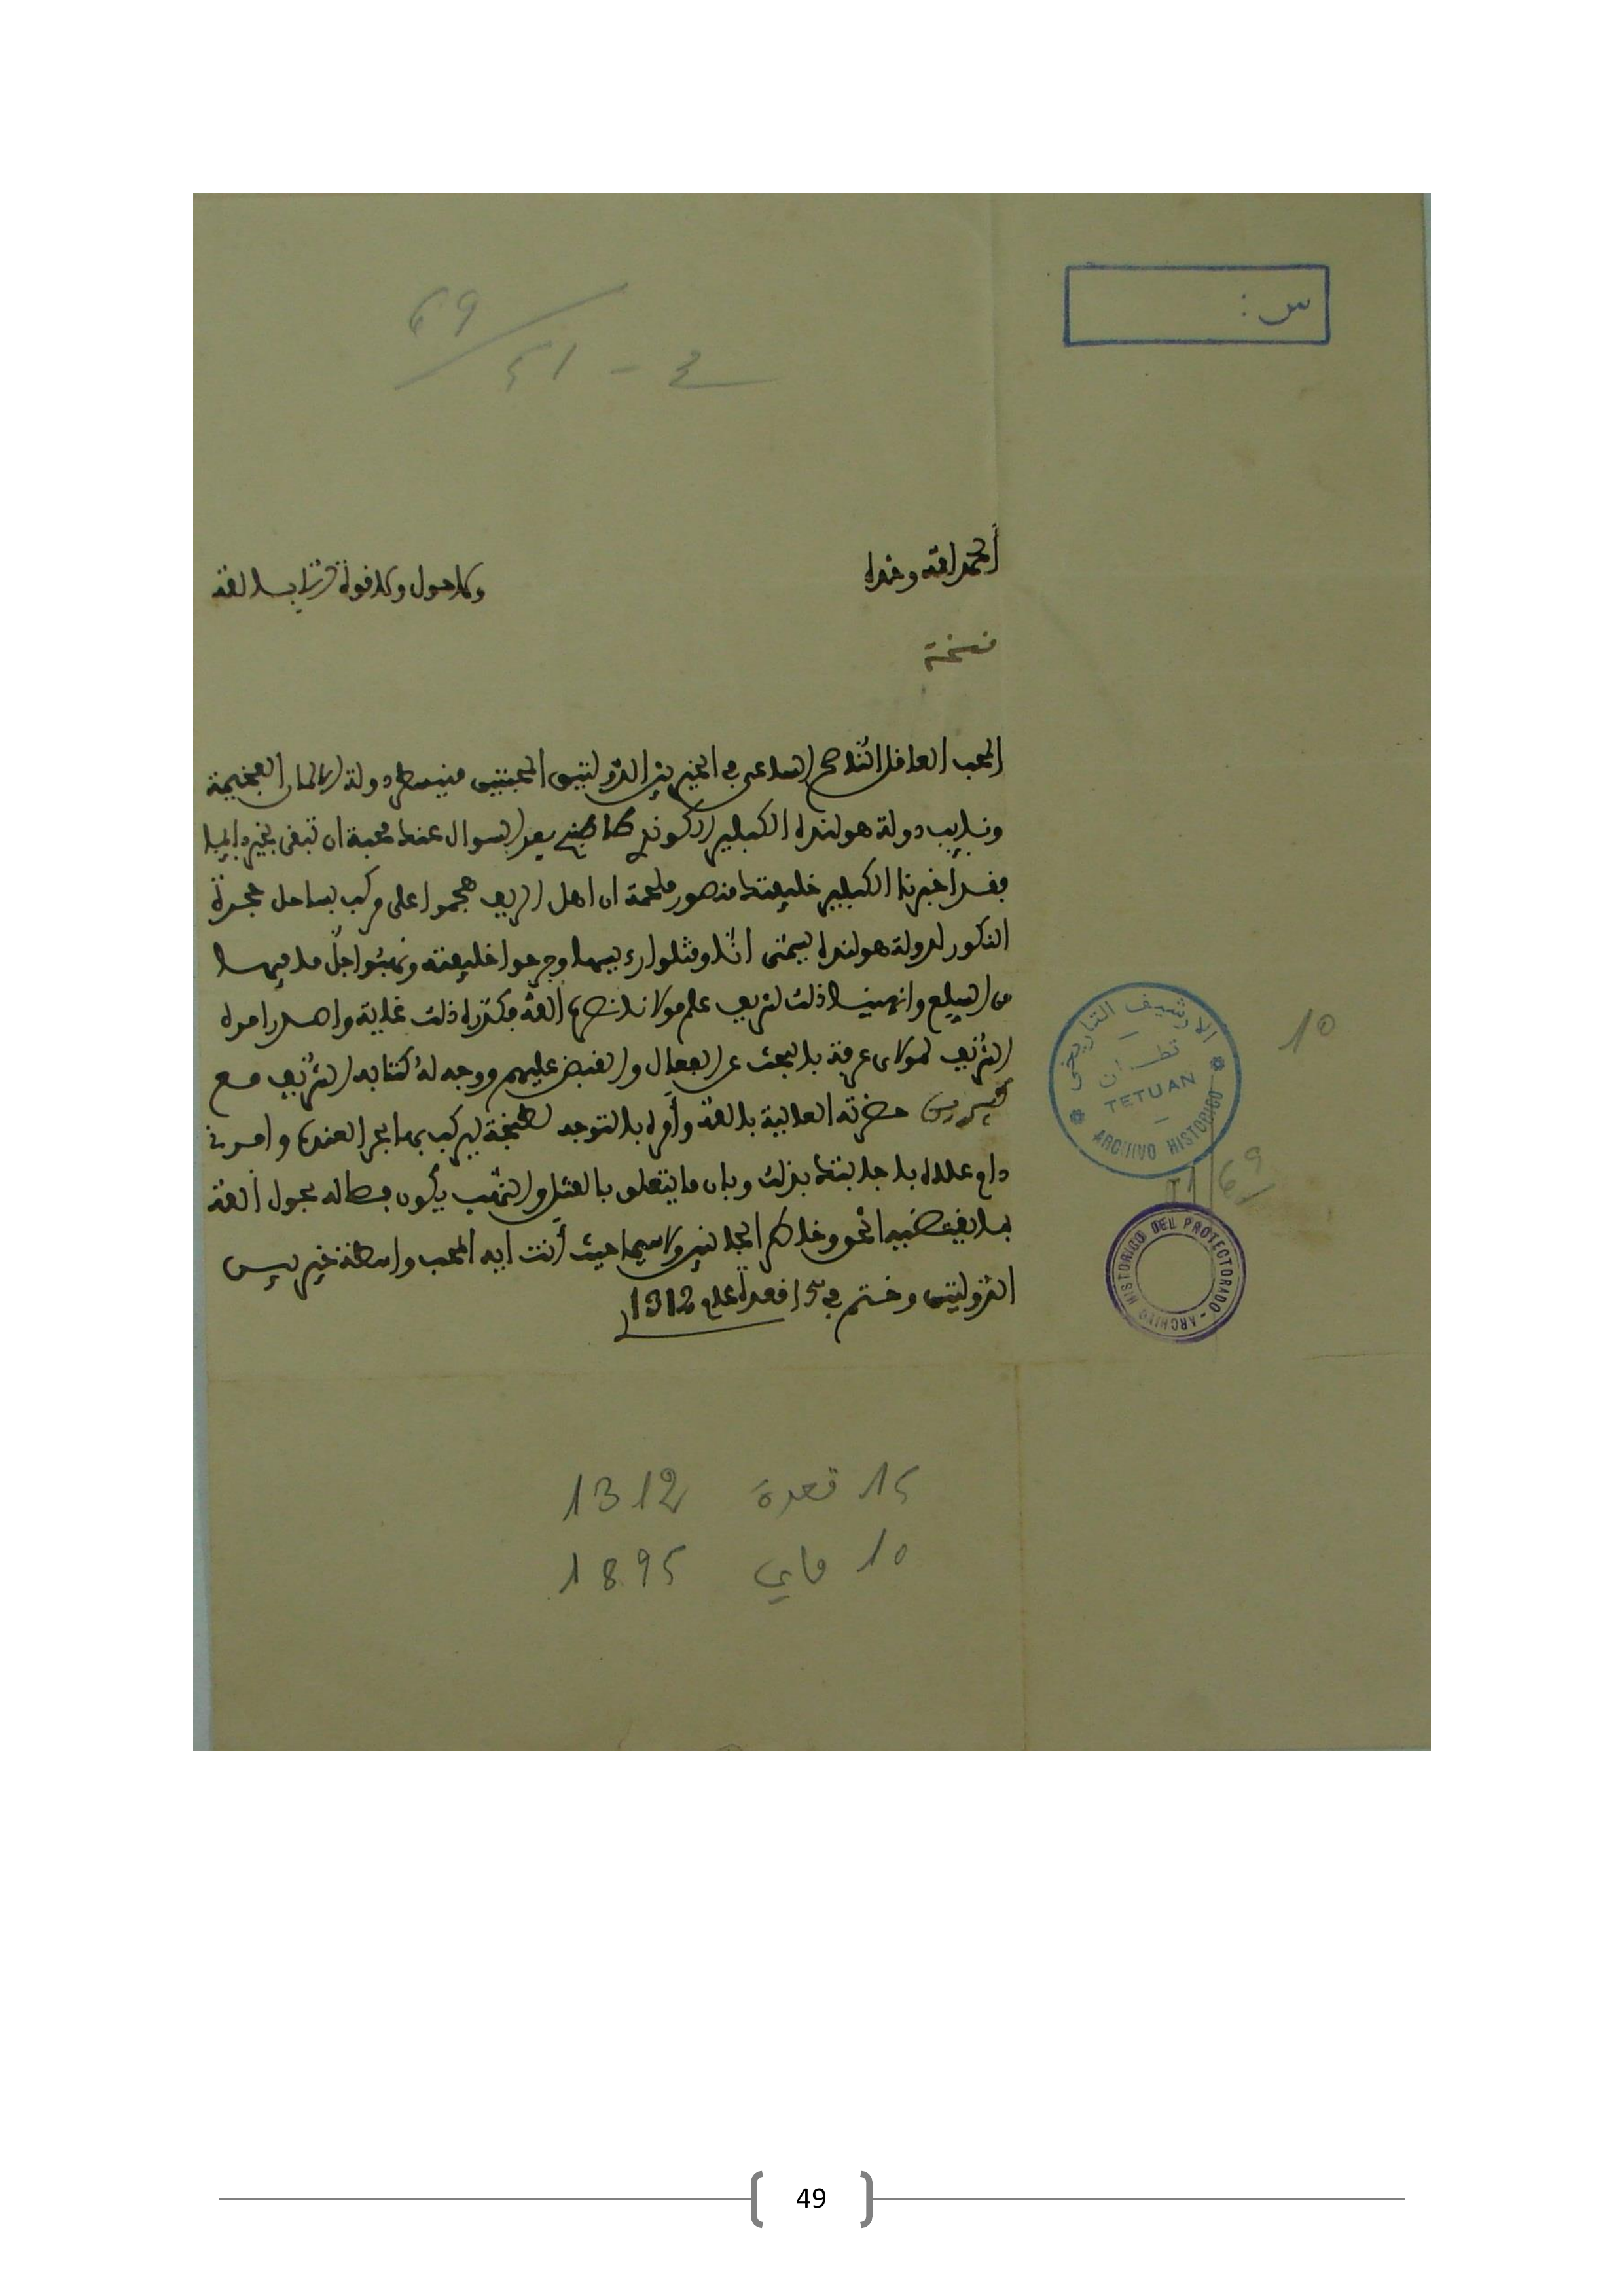 س :
69
51 - ع
الحمد لله وحده
ولا حول ولا قوة إلا بالله
نسخة
المحب العاقل الناصح الساعي في الخير بين الدولتين المحبتين منيسطر دولة الالمان الفخيمة
ونايب دولة هولنده الكبلير الكوند طاطنبخ بعد السوال عنك محبة ان تبقى بخير دايما
فقد أخبرنا الكبلير خليفتك منصور ملحمة ان اهل الريف هجموا على مركب بساحل حجرة
النكور لدولة هولنده يسمى انا وقتلوا رءيسها وجرحوا خليفته ونهبوا جل ما فيها
من السلع وانهينا ذلك لشريف علم مولانا نصره الله فكدره ذلك غاية واصدر امره
الشريف لمولاي عرفة بالبحث عن الفعال والقبض عليهم ووجه له كتابه الشريف مع
حضرته العالية بالله وأمره بالتوجه لطنجة ليركب بها بحرا لعنده وامرني
دام علاه باجابتك بذلك وبان ما يتعلق بالقتل والنهب يكون فصاله بحول الله
بما يقتضيه الحق وخلاص الجانبين ولاسيما حيث أنت ايه المحب واسطة خير بين
الدولتين وختم في 15 قعدة عام 1312
الارشيف التاريخي
تطوان
TETUAN
ARCHIVO HISTORICO
10
69
ARCHIVO HISTORICO DEL PROTECTORADO
15 قعدة 1312
10 ماي 1895
49